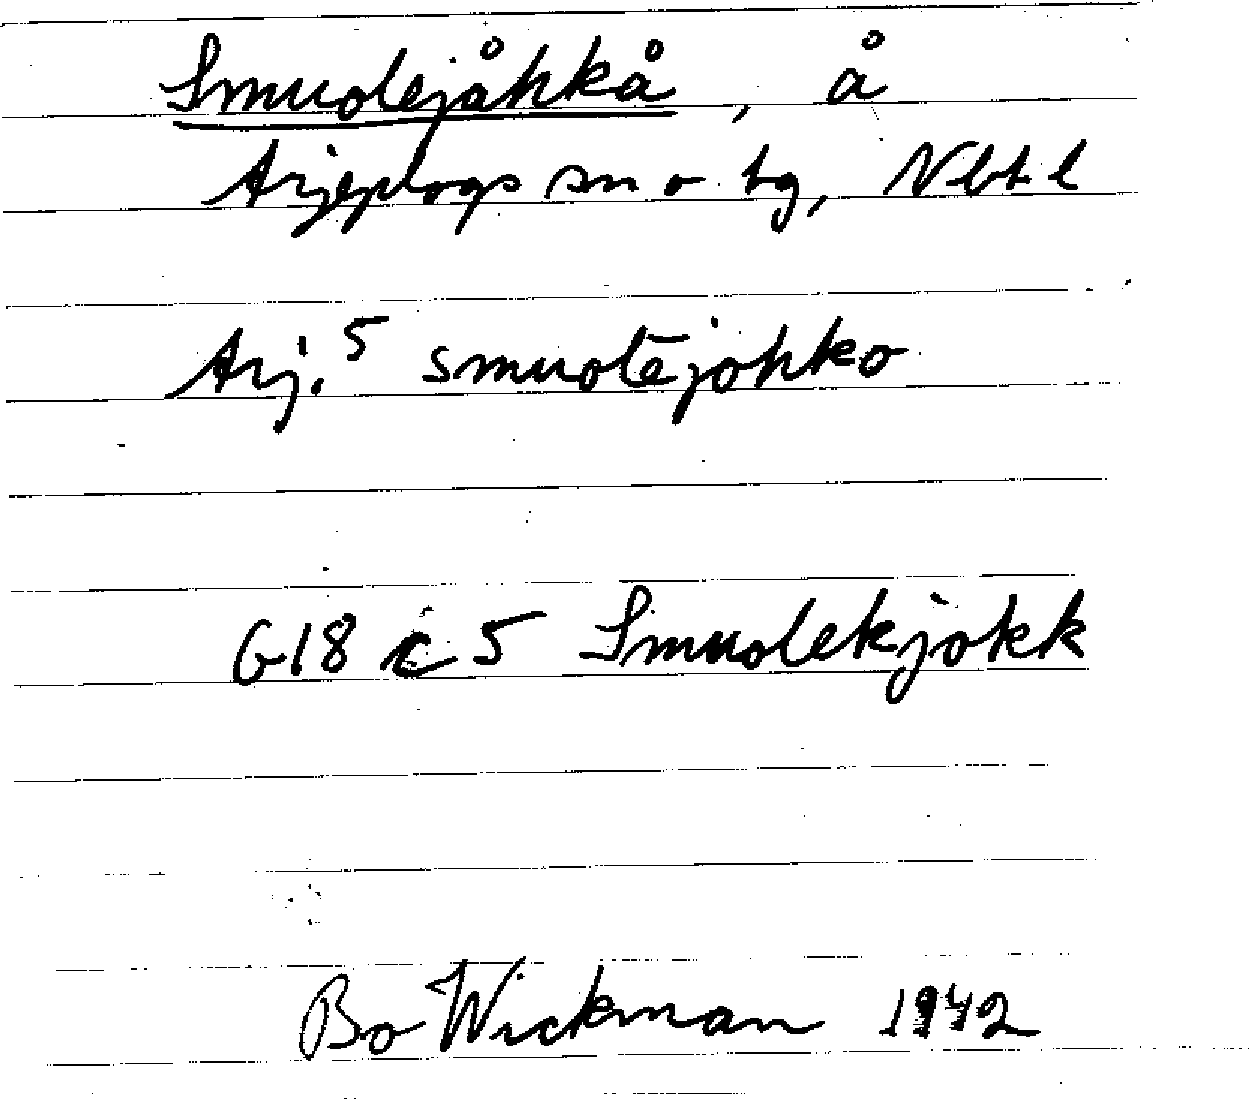 Smuolejåhkå, å
Arjeplogs sn o. tg, Nbt. l
Arj.⁵ smuolējohko
G18 c 5 Smuolekjokk
Bo Wickman 1942